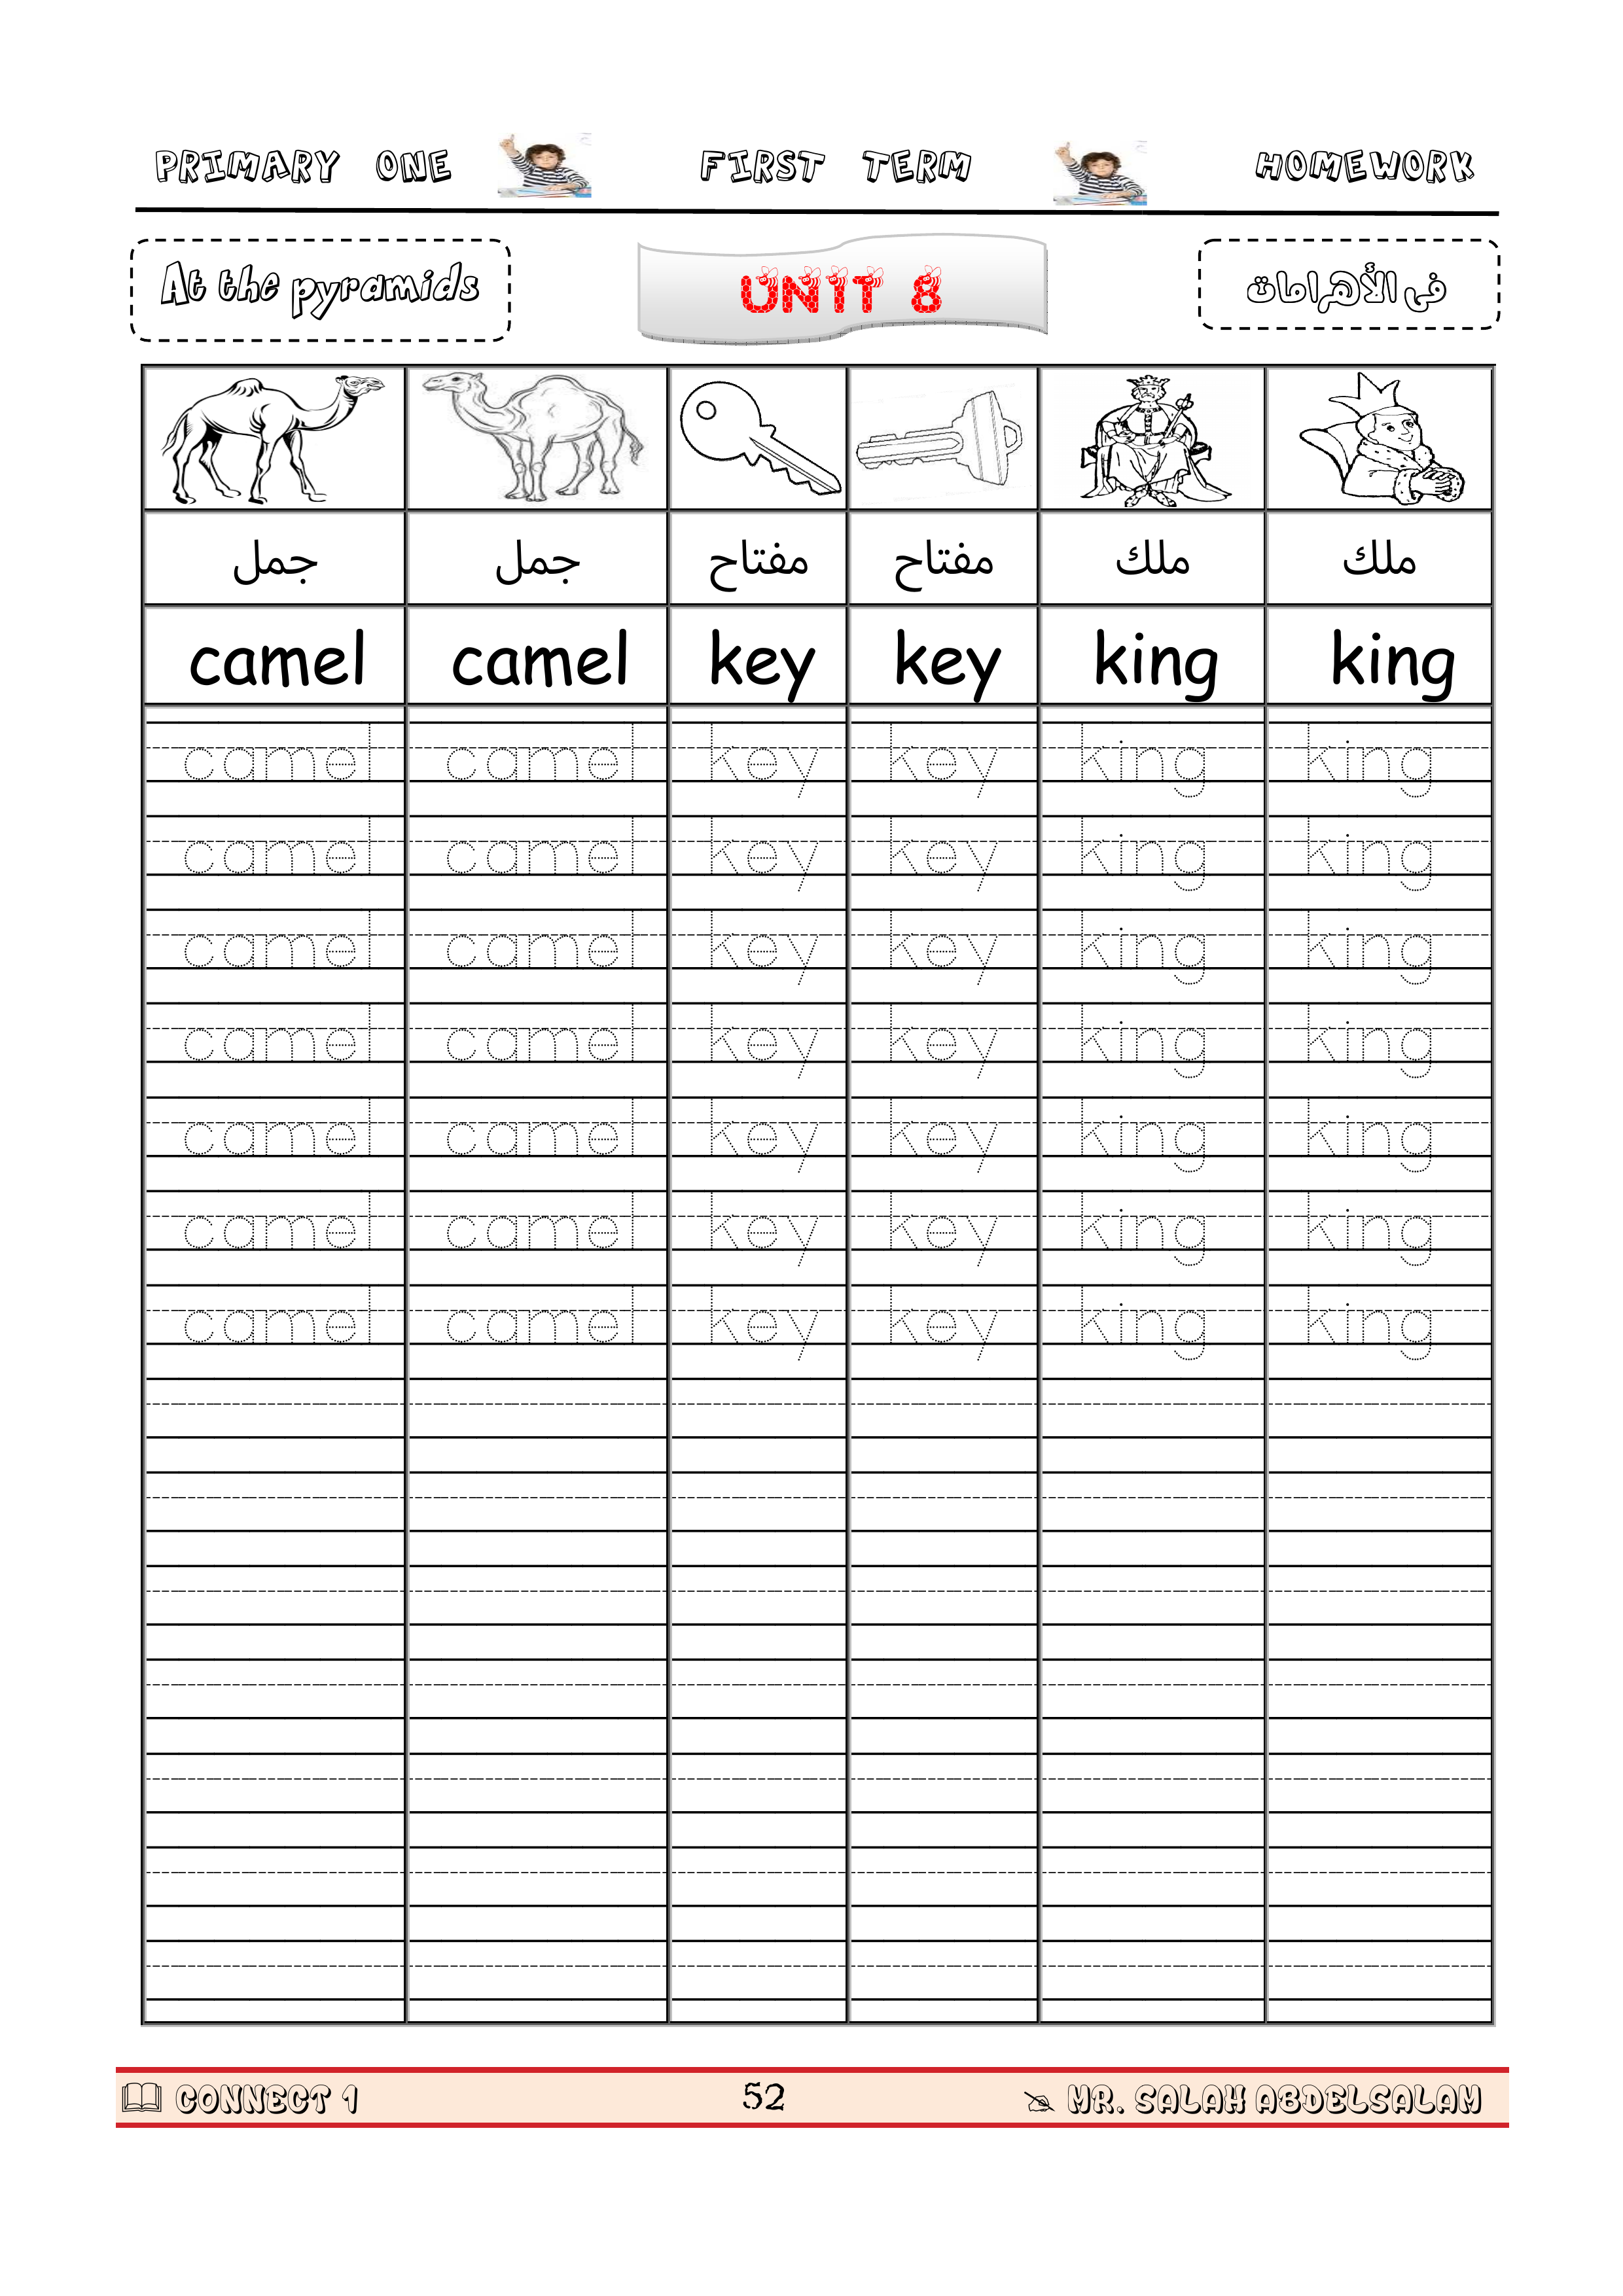 PRIMARY ONE FIRST TERM HOMEWORK
At the pyramids UNIT 8 فى الأهرامات
جمل جمل مفتاح مفتاح ملك ملك
camel camel key key king king
camel camel key key king king
camel camel key key king king
camel camel key key king king
camel camel key key king king
camel camel key key king king
camel camel key key king king
camel camel key key king king
CONNECT 1 52 MR. SALAH ABDELSALAM